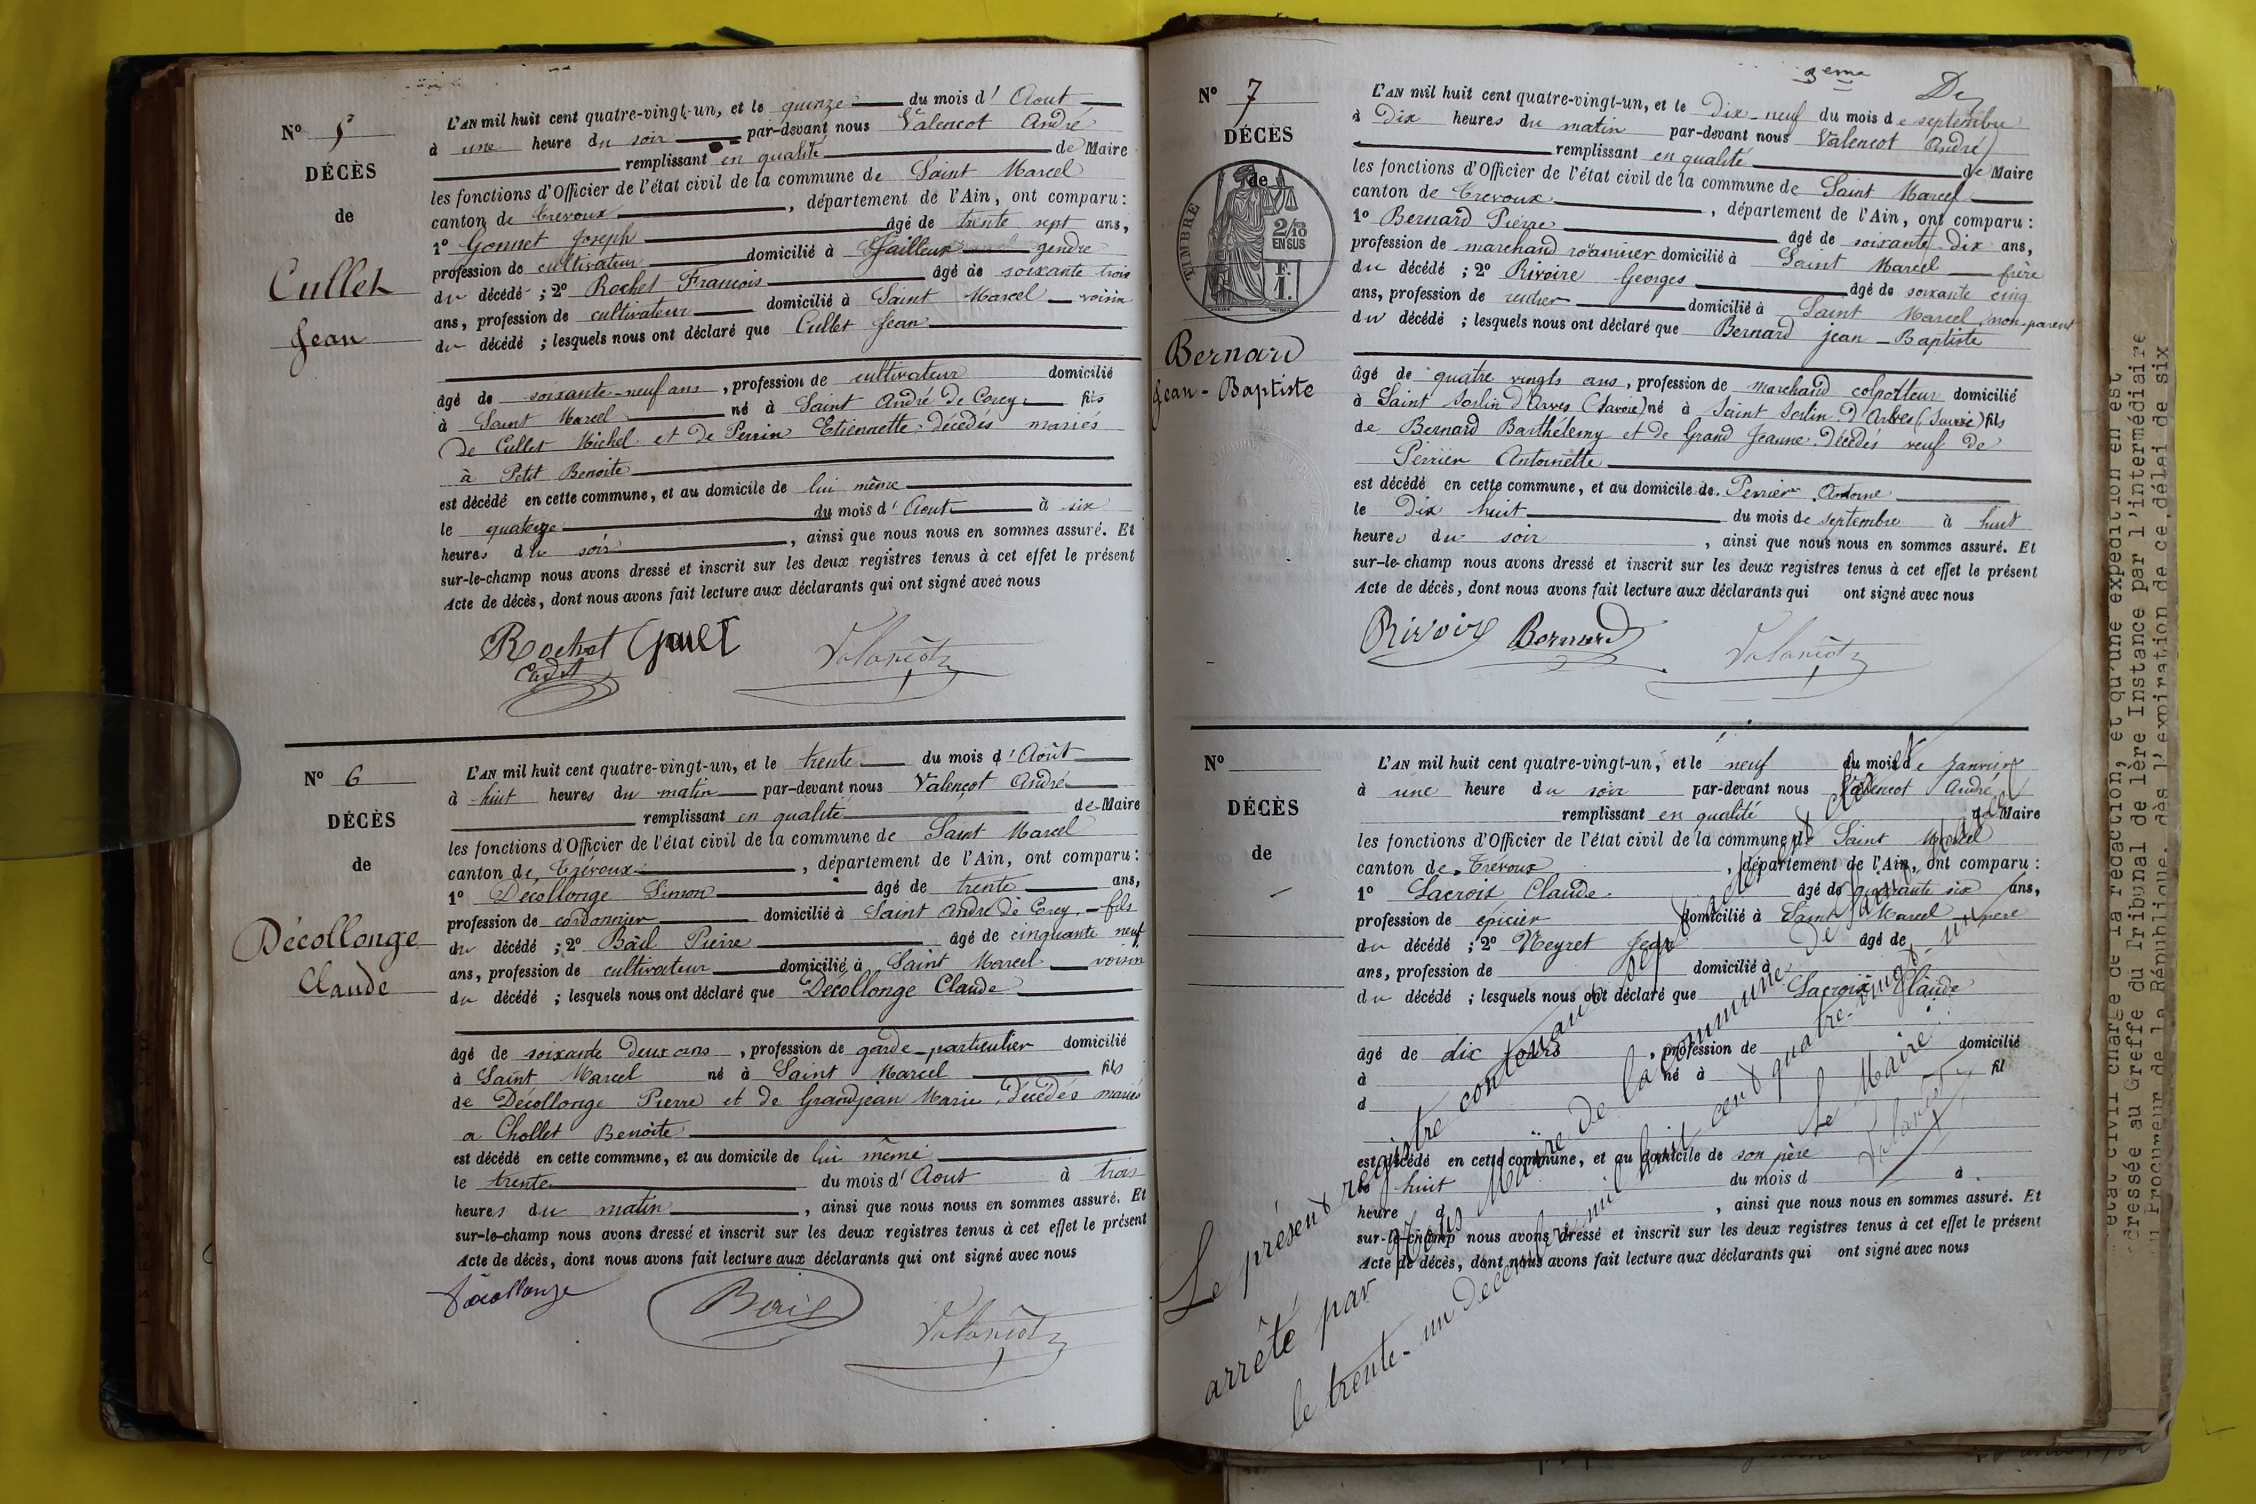 N° 5
DÉCÈS
de
Cullet
Jean
L'AN mil huit cent quatre-vingt-un, et le quinze du mois d' Aout
à une heure du soir par-devant nous Valencot André
remplissant en qualité de Maire
les fonctions d'Officier de l'état civil de la commune de Saint Marcel
canton de Trevoux, département de l'Ain, ont comparu :
1° Gonnet Joseph âgé de trente sept ans,
profession de cultivateur domicilié à gendre
du décédé ; 2° Rochet François âgé de soixante trois
ans, profession de cultivateur domicilié à Saint Marcel voisin
du décédé ; lesquels nous ont déclaré que Cullet Jean
âgé de soixante-neuf ans, profession de cultivateur domicilié
à Saint Marcel né à Saint André de Corcy fils
de Cullet Michel et de Perrin Etiennette décédés mariés
à Petit Benoite
est décédé en cette commune, et au domicile de lui même
le quatorze du mois d' Aout à six
heures du soir, ainsi que nous nous en sommes assuré. Et
sur-le-champ nous avons dressé et inscrit sur les deux registres tenus à cet effet le présent
Acte de décès, dont nous avons fait lecture aux déclarants qui ont signé avec nous
Rochet
Valancot
N° 6
DÉCÈS
de
Décollonge
Claude
L'AN mil huit cent quatre-vingt-un, et le trente du mois d' Août
à huit heures du matin par-devant nous Valençot André
remplissant en qualité de Maire
les fonctions d'Officier de l'état civil de la commune de Saint Marcel
canton de Trévoux, département de l'Ain, ont comparu :
1° Décollonge Simon âgé de trente ans,
profession de cordonnier domicilié à Saint André de Corcy - fils
du décédé ; 2° Pierre âgé de cinquante neuf
ans, profession de cultivateur domicilié à Saint Marcel voisin
du décédé ; lesquels nous ont déclaré que Décollonge Claude
âgé de soixante deux ans, profession de garde-particulier domicilié
à Saint Marcel né à Saint Marcel fils
de Décollonge Pierre et de Grandjean Marie, décédés mariés
a Chollet Benoite
est décédé en cette commune, et au domicile de lui même
le trente du mois d' Aout à trois
heures du matin, ainsi que nous nous en sommes assuré. Et
sur-le-champ nous avons dressé et inscrit sur les deux registres tenus à cet effet le présent
Acte de décès, dont nous avons fait lecture aux déclarants qui ont signé avec nous
Décollonge
Valancot
3eme
De
N° 7
DÉCÈS
de
TIMBRE
2/10
EN SUS
F.
1.
Bernard
Jean-Baptiste
L'AN mil huit cent quatre-vingt-un, et le Dix-neuf du mois de septembre
à Dix heures du matin par-devant nous Valencot André
remplissant en qualité de Maire
les fonctions d'Officier de l'état civil de la commune de Saint Marcel
canton de Trevoux, département de l'Ain, ont comparu :
1° Bernard Pierre âgé de soixante-dix ans,
profession de marchand domicilié à Saint Marcel frère
du décédé ; 2° Rivoire Georges âgé de soixante cinq
ans, profession de rentier domicilié à Saint Marcel, non-parent
du décédé ; lesquels nous ont déclaré que Bernard jean-Baptiste
âgé de quatre vingts ans, profession de marchand colporteur domicilié
à Saint Sorlin d'Arves (Savoie) né à Saint Sorlin d'Arves (Savoie) fils
de Bernard Barthélemy et de Grand Jeanne, décédés veuf de
Perrier Antoinette
est décédé en cette commune, et au domicile de Perrier Antoine
le Dix huit du mois de septembre à huit
heures du soir, ainsi que nous nous en sommes assuré. Et
sur-le-champ nous avons dressé et inscrit sur les deux registres tenus à cet effet le présent
Acte de décès, dont nous avons fait lecture aux déclarants qui ont signé avec nous
Rivoire Bernard Valancot
N°
DÉCÈS
de
L'AN mil huit cent quatre-vingt-un, et le neuf du mois de Janvier
à une heure du soir par-devant nous Valencot André
remplissant en qualité de Maire
les fonctions d'Officier de l'état civil de la commune de Saint Marcel
canton de Trévoux, département de l'Ain, ont comparu :
1° Lacroix Claude âgé de quarante six ans,
profession de épicier domicilié à Saint Marcel père
du décédé ; 2° Neyret Jean âgé de
ans, profession de domicilié à
du décédé ; lesquels nous ont déclaré que Lacroix Claude
âgé de dix jours, profession de domicilié
à né à fil
d
est décédé en cette commune, et au domicile de son père
le huit du mois d à
heure d, ainsi que nous nous en sommes assuré. Et
sur-le-champ nous avons dressé et inscrit sur les deux registres tenus à cet effet le présent
Acte de décès, dont nous avons fait lecture aux déclarants qui ont signé avec nous
Le présent registre contenant sept
arrêté par Nous Maire de la commune de Saint Marcel
le trente-un décembre mil huit cent quatre-vingt-un
Le Maire
Valancot
état civil chargé de la rédaction, et qu'une expédition en est
dressée au Greffe du Tribunal de 1ère Instance par l'intermédiaire
du Procureur de la République, dès l'expiration de ce délai de six